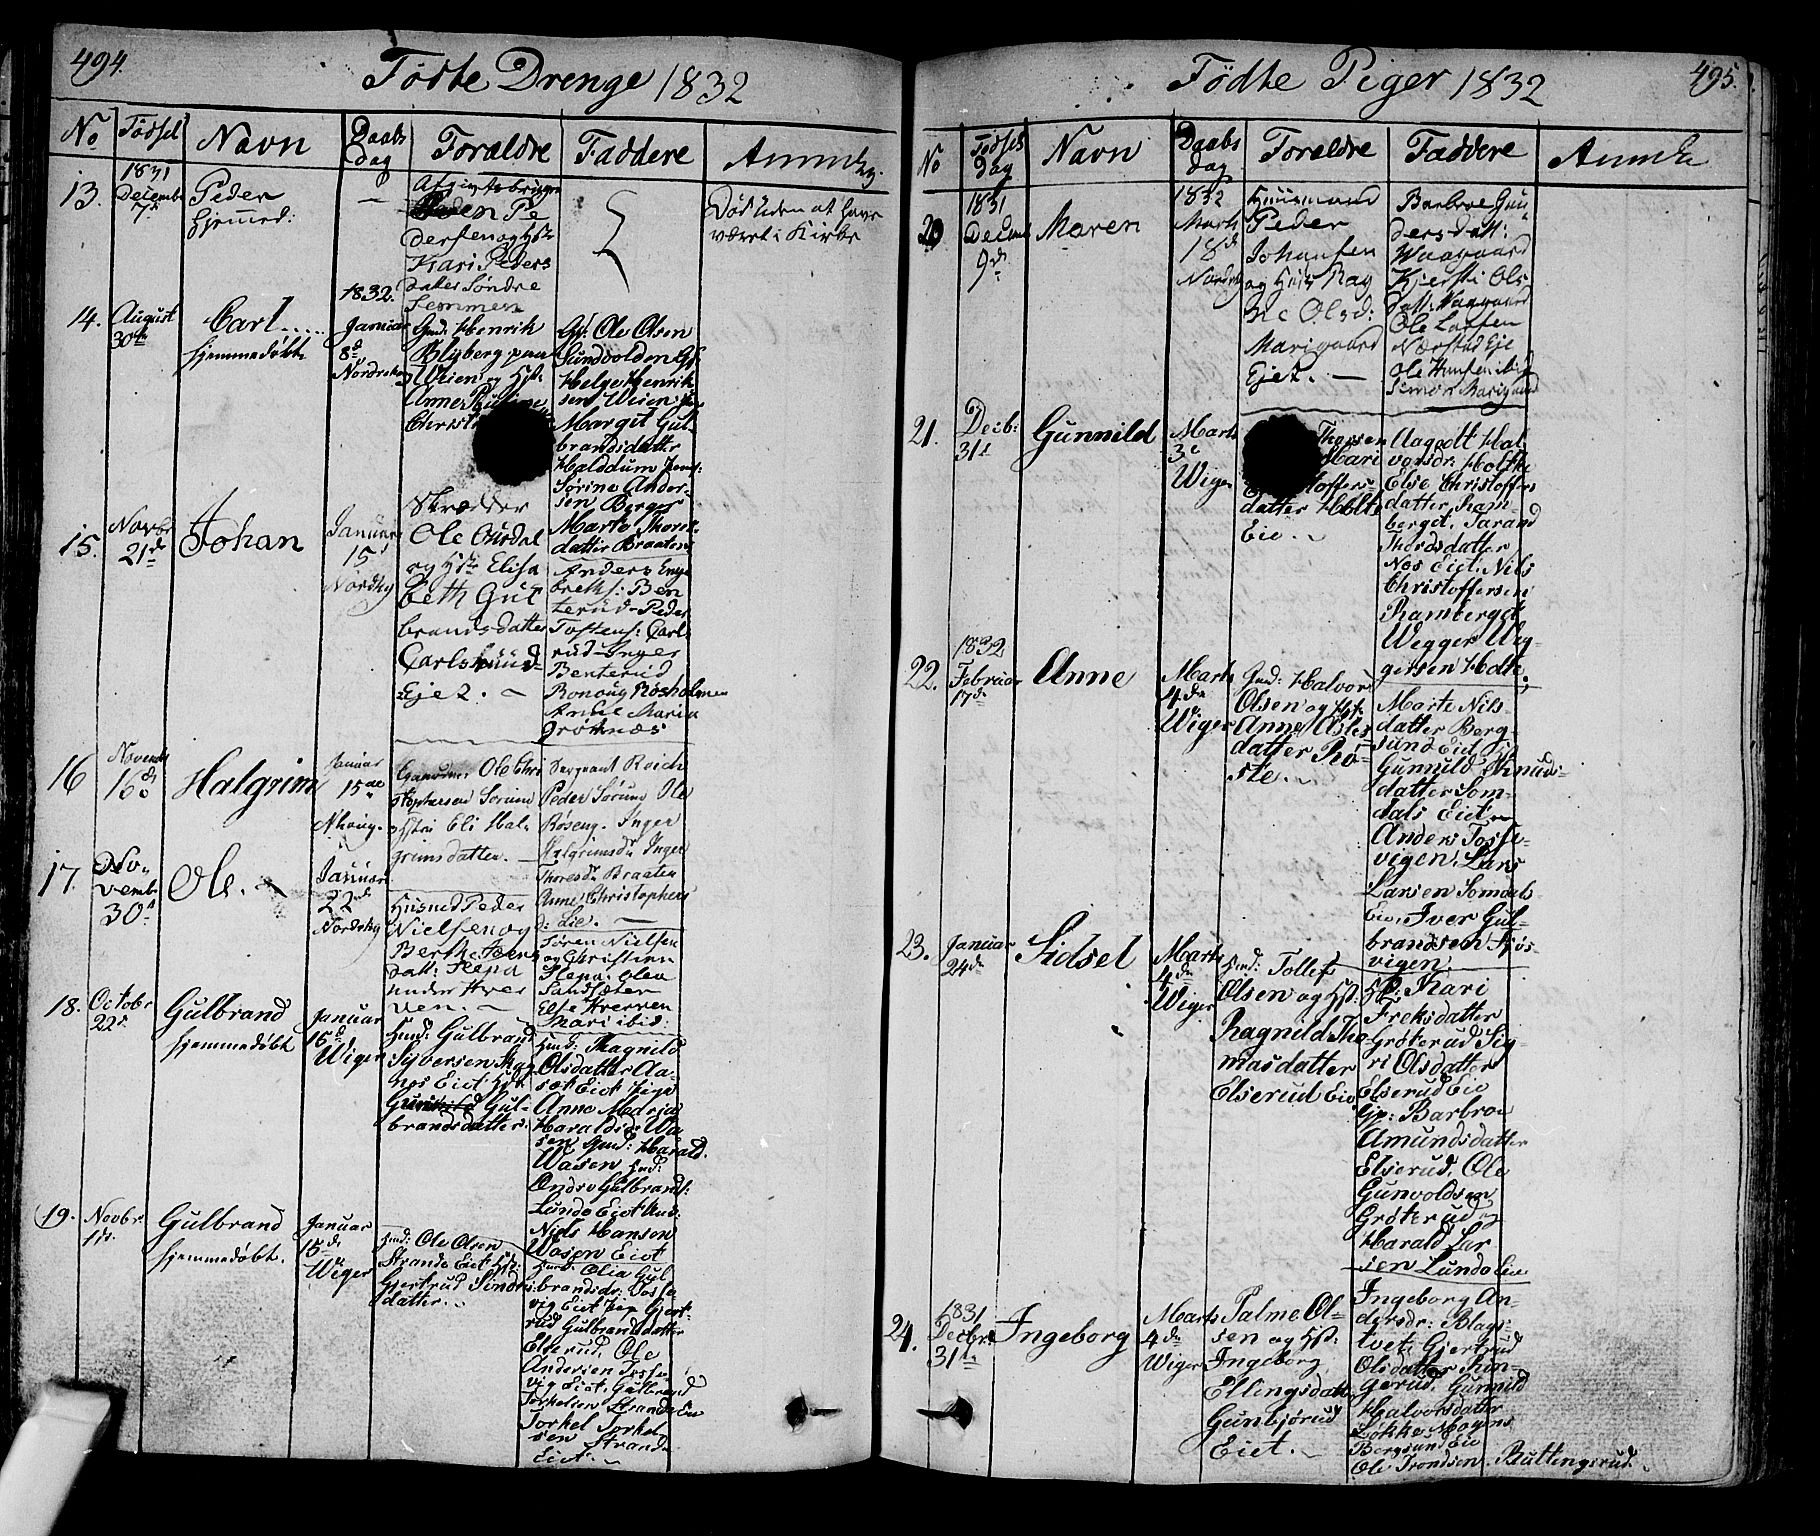 494.
Fødte Drenge 1832
No
Fødsel
Navn
Daabs
dag
Foraldre
Faddere
Anmerkg.
13.
1831
Decemb
7d
Peder
hjemmed:
—
Afgivtsbrüger
Peder Pe
dersen og Hst
Kari Peders
datter Søndre
Semmen
Død uden at have
været i Kirke
14.
August
30te
Carl
hjemmedöbt
1832.
Januar
8d
Nordrehoug
Gmd: Henrik
Blyberg paa
Weien og Hst:
Anne
Christ
Gp: Ole Olsen
Sundvolden Gp
Helge Henrik
sen Weien
Margit Gul
brandsdatter
Halddum
Sørine Ander-
sen Berger
Marte Thores
datter Braaten
15.
Novbr
21d
Johan
Januar
15d
Nordhg
Skrædder
Ole
og Hst Elisa
beth Gul
brandsdatter
Eje 2. —
Anders Enge
breths: Ben
terud- Peder
Tostens: Carls
rud- Inger
Benterud
Røsholmen
Anne Maria
Grøtnæs
16
Novemb
16d
Halgrim
Januar
15de
Nhoug.
Ole Chri
stophersen Sørum
Hstri Eli Hal-
grimsdatter. —
Sergeant Roich
Peder Sørum Ole
Røseng. Inger
Halgrimsdr Inger
Thoresdr Braaten
Anne Christophers
d: Lie. —
17.
No-
vemb
30d
Ole. —
Januar
22nd
Nordrhg
Husmd Peder
Nielsen og
Berthe Jens
datt: Stepa
under Hver
ven. —
Søren Nielsen
og Christian
Stepa: Olea
Sandsæter
Else Hverven
Mari ibid:
18.
Octobr
22d.
Gulbrand
hjemmedøbt
Januar
15d
Wiger
Hmd: Gulbrand
Syversen
nes Eiet Hst
Gunhild Gul-
brandsdatter.
Hmd: Ragnild
Olsdatter Aa-
sæt Eiet Pige
Anne Maria
Haraldsd: Wa-
sen Gmd: Harald
Wasen Hmd:
Andro Gulbrands:
Lunde Eiet Und:
Niels Hansen
Wasen Eiet
19.
Novbr
11d.
Gulbrand
hjemmedøbt.
Januar
15de
Wiger
Hmd: Ole Olsen
Strande Eiet Hst:
Gjertrud Simens
datter.
Hmd: Olia Gul
brandsdr: Tosse-
vig Eiet Pige Gjert-
rud Gulbrandsdatter
Elserud, Ole
Andersen Tosse-
vig Eiet. Gulbrand
Torkelsen Strande Eie
Torkel Torkel-
sen Strande
Eiet.
495.
Fødte Piger 1832
No
Fødsels
Dag
Navn
Daabs
dag
Foraldre
Faddere
Anmerk
20
1831
Decemb
9d
Maren
1832
Marts
18d
Nordrhg
Huusmand
Peder
Johansen
og Hst Rag
ne Olsd:
Marigaard
Eje 2. —
Barbroe Gun
dersdatt:
Waagaard
Kjersti Ols
datt: Waagaard
Ole Larsen
Nærstad Eje
Ole Hansen ibid
Simon Marigaard
21.
Decb:
31d
Gunnild
Marts
3e
Wiger
Thorsen
Mari
stoffers-
datter Holte
Eie.
Aagodt Hal
vorsdr: Holthe
Else Christoffers
datter Ram-
berget. Tarand
Thordsdatter
Nos Eiet. Nils
Christoffersen
Ramberget
Wegger Weg-
gersen Holte.
22.
1832
Februar
17d
Anne
Marts
4de
Wiger
Gmd: Halvor
Olsen og Hst:
Anne Asles
datter Rö-
ste.
Marte Nils-
datter Berg-
sund Eiet
Gunnild Knuds-
datter Som-
dals Eiet
Anders Tosse-
vigen. Lars
Larsen Somdals
Eie. Iver Gul-
brandsen Sjøs-
vigen.
23.
Januar
24de
Sidsel
Marts
4de
Wiger
Hmd: Tollef
Olsen og Hst:
Ragnild Tho-
masdatter
Elserud Eie
Kari
Freksdatter
Grøterud Sig-
ri Olsdatter
Elserud Eie
Gp: Barbroe
Amundsdatter
Elserud. Ole
Gunvoldsen
Grøterud og
Harald Lar
sen Lunde Eie
24.
1831
Decbr
31te
Ingeborg
Marts
4de
Wiger
Palme Ol-
sen og Hst:
Ingeborg
Ellingsdatt
Gunbjørud
Eiet. —
Ingeborg An-
dersdr: Blags-
tvet. Gjertrud
Olsdatter Rin-
gerud. Gunnild
Halvorsdatter
Løkke. Mogens
Bergsund Eie
Ole Trondsen Ruttingsrud